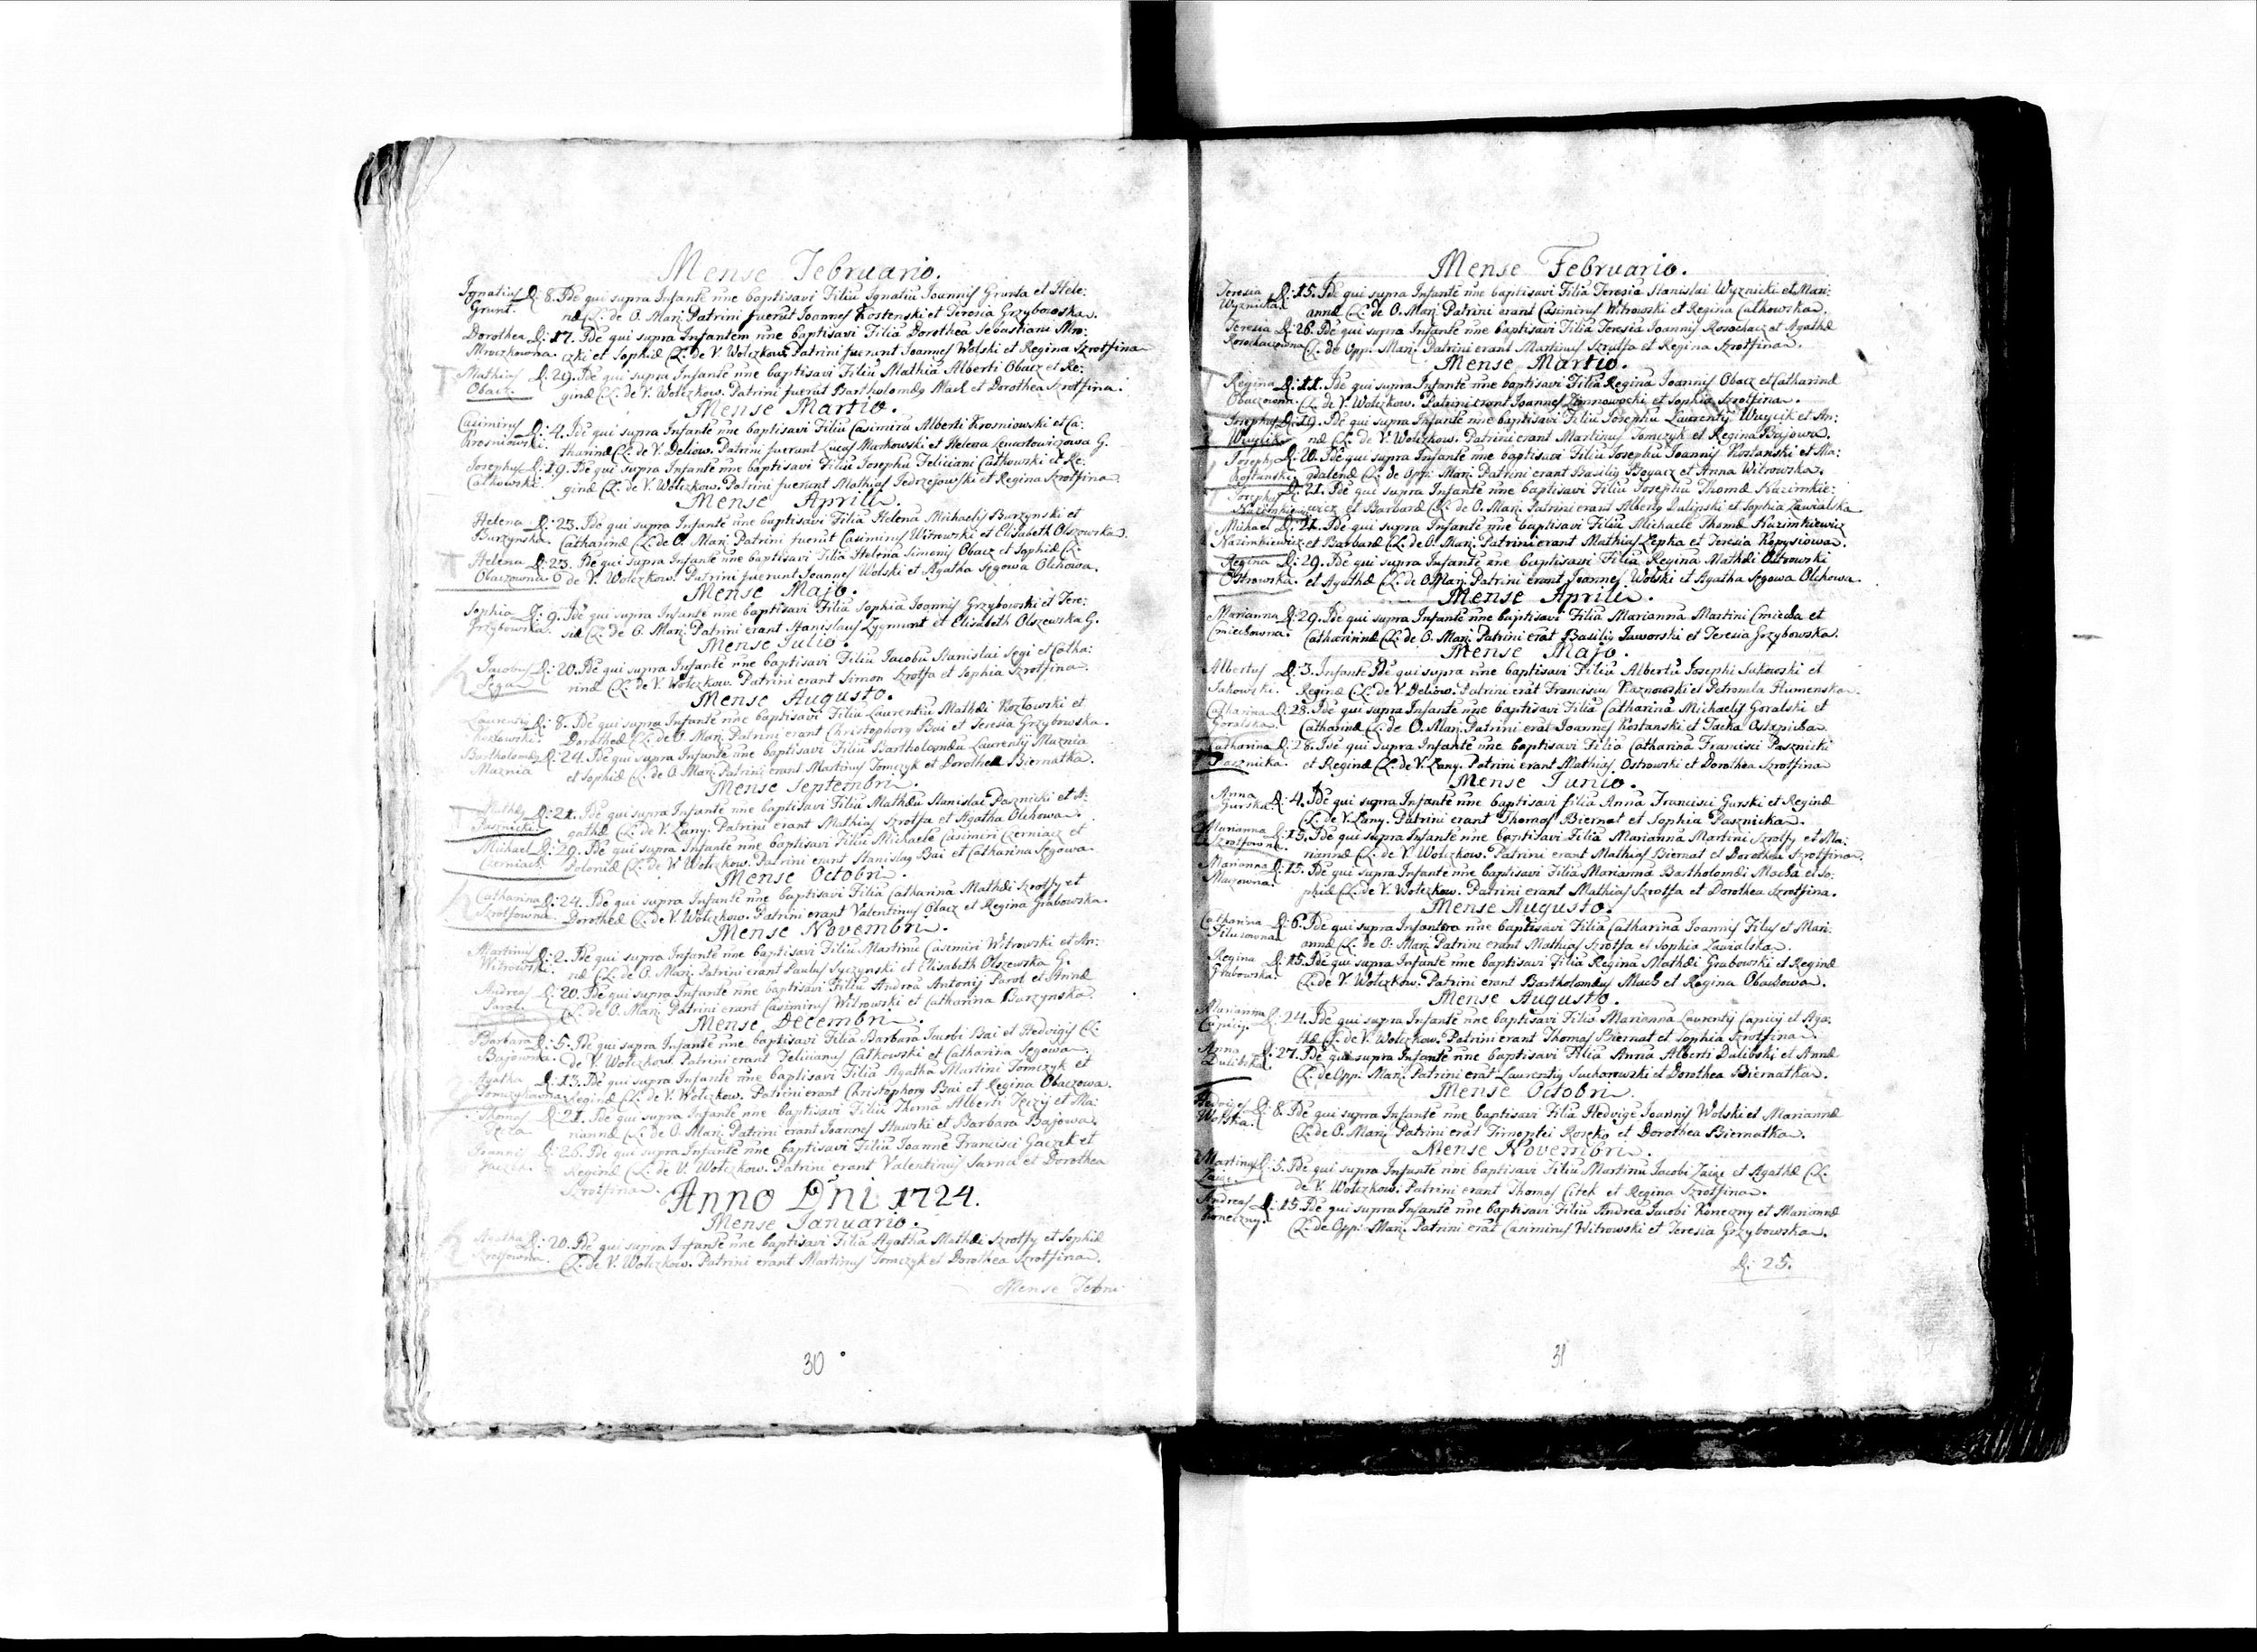 Mense Februario.
Ignatius D: 8. Ide qui supra Infante nne baptisavi Filiu Ignatiu Joannis Grunta et Hele:
Grunt. næ CL: de O. Marj. Patrini fuerut Joannes Kostenski et Teresia Grzybowska.
Dorothea D: 17. Ide qui supra Infantem nne baptisavi Filia Dorothea Sebastiani Mro:
Mroczkowna. czki et Sophiæ CL: de V. Wolczkow. Patrini fuerunt Joannes Wolski et Regina Szrotfina
Mathias D: 29. Ide qui supra Infante nne baptisavi Filiu Mathia Alberti Obacz et Re:
Obacz. ginæ CL: de V. Wolczkow. Patrini fuerut Bartholomeg Mach et Dorothea Szrotfina.
Mense Martio.
Casimirus D: 4. Ide qui supra Infante nne baptisavi Filiu Casimiru Alberti Krosniowski et Ca:
Krosniowski. tharinæ CL: de V. Deliow. Patrini fuerunt Lucas Markowski et Helena Lenartowiczowa G.
Josephus D: 19. Ide qui supra Infante nne baptisavi Filiu Josephu Feliciani Catkowski et Re:
Catkowski. ginæ CL: de V. Wolczkow. Patrini fuerunt Mathias Jedrzejowski et Regina Szrotfina
Mense Aprili.
Helena D: 23. Ide qui supra Infante nne baptisavi Filia Helena Michaelis Burzynski et
Burzynska. Catharinæ CL: de O. Marj. Patrini fuerut Casimirus Witrowski et Elisabeth Olszowska.
Helena D: 23. Ide qui supra Infante nne baptisavi Filia Helena Simonis Obacz et Sophiæ CL:
Obaczowna de V. Wolczkow. Patrini fuerunt Joannes Wolski et Agatha Segowa Olchowa.
Mense Majo.
Sophia D: 9. Ide qui supra Infante nne baptisavi Filia Sophia Joannis Grzybowski et Tere:
Grzybowska. siæ CL: de O. Marj. Patrini erant Stanislaus Zygmunt et Elisabeth Olszewska G.
Mense Julio.
Jacobus D: 20. Ide qui supra Infante nne baptisavi Filiu Jacobu Stanislai Segi et Catha:
Sega rinæ CL: de V. Wolczkow. Patrini erant Simon Szrotfa et Sophia Szrotfina.
Mense Augusto.
Laurentig D: 8. Ide qui supra Infante nne baptisavi Filiu Laurentiu Mathæi Kozlowski et
Kozlowski. Dorotheæ CL: de O. Marj. Patrini erant Christophorg Bai et Teresia Grzybowska.
Bartholomeg D: 24. Ide qui supra Infante nne baptisavi Filiu Bartholomæu Laurentij Muznia
Muznia et Sophiæ CL: de O. Marj. Patrini erant Martinus Tomczyk et Dorothea Biernatka.
Mense Septembri.
Matheg D: 21. Ide qui supra Infante nne baptisavi Filiu Mathæu Stanislai Pasznicki et A:
Pasznicki. gathæ CL: de V. Lany. Patrini erant Mathias Szrotfa et Agatha Olchowa.
Michael D: 29. Ide qui supra Infante nne baptisavi Filiu Michaele Casimiri Czerniach et
Czerniach. Poloniæ CL: de V. Wolczkow. Patrini erant Stanislag Bai et Catharina Segowa.
Mense Octobri.
Catharina D: 24. Ide qui supra Infante nne baptisavi Filia Catharina Mathæi Szrotfy et
Szrotfowna. Dorotheæ CL: de V. Wolczkow. Patrini erant Valentinus Obacz et Regina Grabowska.
Mense Novembri.
Martinus D: 2. Ide qui supra Infante nne baptisavi Filiu Martinu Casimiri Witrowski et An:
Witrowski. næ CL: de O. Marj. Patrini erant Paulus Syczynski et Elisabeth Olszewska G.
Andreas D: 20. Ide qui supra Infante nne baptisavi Filiu Andrea Antonij Parol et Annæ
Parol. CL: de O. Marj. Patrini erant Casimirus Witrowski et Catharina Burzynska.
Mense Decembri.
Barbara D: 5. Ide qui supra Infante nne baptisavi Filia Barbara Jacobi Bai et Hedvigis CL:
Bajowna. de V. Wolczkow. Patrini erant Felicianus Catkowski et Catharina Segowa.
Agatha D: 13. Ide qui supra Infante nne baptisavi Filia Agatha Martini Tomczyk et
Tomczykowna. Reginæ CL: de V. Wolczkow. Patrini erant Christophorg Bai et Regina Obaczowa.
Thomas D: 21. Ide qui supra Infante nne baptisavi Filiu Thoma Alberti Tęczy et Ma:
Tęcza riannæ CL: de O. Marj. Patrini erant Joannes Stawski et Barbara Bajowa.
Joannis D: 26. Ide qui supra Infante nne baptisavi Filiu Joanne Francisci Gaczek et
Gaczek. Reginæ CL: de V. Wolczkow. Patrini erant Valentinus Sarna et Dorothea
Szrotfina.
Anno Dni 1724.
Mense Januario.
Agatha D: 20. Ide qui supra Infante nne baptisavi Filia Agatha Mathæi Szrotfy et Sophiæ
Szrotfowna. CL: de V. Wolczkow. Patrini erant Martinus Tomczyk et Dorothea Szrotfina.
Mense Febru
30
Mense Februario.
Teresia D: 15. Ide qui supra Infante nne baptisavi Filia Teresia Stanislai Wyznicki et Mari:
Wyznicka. annæ CL: de O. Marj. Patrini erant Casimirus Witrowski et Regina Catkowska.
Teresia D: 26. Ide qui supra Infante nne baptisavi Filia Teresia Joannis Rosochacz et Agathæ
Rosochaczowna CL: de Opp: Marj. Patrini erant Martinus Szrutfa et Regina Szrotfina.
Mense Martio.
Regina D: 11. Ide qui supra Infante nne baptisavi Filia Regina Joannis Obacz et Catharinæ
Obaczowna. CL: de V. Wolczkow. Patrini erant Joannes et Sophia Szrotfina.
Josephus D: 19. Ide qui supra Infante nne baptisavi Filiu Josephu Laurentij Wuycik et An:
Wuycik. næ CL: de V. Wolczkow. Patrini erant Martinus Tomczyk et Regina Bajowa.
Josephg D: 20. Ide qui supra Infante nne baptisavi Filiu Josephu Joannis Kostanski et Ma:
Kostanski. gdalenæ CL: de Opp: Marj. Patrini erant Basilig Bogacz et Anna Witrowska.
Josephg D: 21. Ide qui supra Infante nne baptisavi Filiu Josephu Thomæ Kazimkie:
Kazimkiewicz et Barbaræ CL: de O. Marj. Patrini erant Alberg Dulipski et Sophia Zawialska
Michael D: 21. Ide qui supra Infante nne baptisavi Filiu Michaele Thomæ Kazimkiewicz
Kazimkiewicz et Barbaræ CL: de O. Marj. Patrini erant Mathias Zepka et Teresia Kopysiowa.
Regina D: 29. Ide qui supra Infante nne baptisavi Filia Regina Mathæi Ostrowski
Ostrowska. et Agathæ CL: de O. Marj. Patrini erant Joannes Wolski et Agatha Segowa Olchowa.
Mense Aprili.
Marianna D: 29. Ide qui supra Infante nne baptisavi Filia Marianna Martini Cmiecha et
Cmiechowna. Catharinæ CL: de O. Marj. Patrini erat Basilig Jaworski et Teresia Grzybowska.
Mense Majo.
Albertus D: 3. Infante Ide qui supra nne baptisavi Filiu Albertu Josephi Sakowski et
Sakowski. Reginæ CL: de V. Deliow. Patrini erat Franciscus Kaznowski et Petronela Humenska.
Catharina D: 28. Ide qui supra Infante nne baptisavi Filia Catharina Michaelis Goralski et
Goralska. Catharinæ CL: de O. Marj. Patrini erat Joannes Kostanski et Jacka Ostapicha.
Catharina D: 28. Ide qui supra Infante nne baptisavi Filia Catharina Francisci Pasznicki
Pasznicka. et Reginæ CL: de V. Lany. Patrini erant Mathias Ostrowski et Dorothea Szrotfina
Mense Junio.
Anna D: 4. Ide qui supra Infante nne baptisavi filia Anna Francisci Gurski et Reginæ
Gurska CL: de V. Lany. Patrini erant Thomas Biernat et Sophia Pasznicka.
Marianna D: 13. Ide qui supra Infante nne baptisavi Filia Marianna Martini Szrotfy et Ma:
Szrotfowna. riannæ CL: de V. Wolczkow. Patrini erant Mathias Biernat et Dorothea Szrotfina.
Marianna D: 15. Ide qui supra Infante nne baptisavi Filia Marianna Bartholomæi Macha et So:
Machowna. phiæ CL: de V. Wolczkow. Patrini erant Mathias Szrotfa et Dorothea Szrotfina.
Mense Augusto.
Catharina D: 6. Ide qui supra Infante nne baptisavi Filia Catharina Joannis Filus et Mari:
Filusowna. annæ CL: de O: Marj. Patrini erant Mathias Szrotfa et Sophia Zawialska.
Regina D: 15. Ide qui supra Infante nne baptisavi Filia Regina Mathæi Grabowski et Reginæ
Grabowska. CL: de V. Wolczkow. Patrini erant Bartholomeg Mach et Regina Obachowa.
Mense Augusto.
Marianna D: 24. Ide qui supra Infante nne baptisavi Filia Marianna Laurentij Capicij et Aga:
thæ CL: de V. Wolczkow. Patrini erant Thomas Biernat et Sophia Szrotfina.
Anna D: 27. Ide qui supra Infante nne baptisavi Filia Anna Alberti Dulibski et Annæ
Dulibska. CL: de Opp: Marj. Patrini erat Laurentig Suchorowski et Dorothea Biernatka.
Mense Octobri.
Hedviges D: 8. Ide qui supra Infante nne baptisavi Filia Hedvige Joannis Wolski et Mariannæ
Wolska. CL: de O. Marj. Patrini erat Timoptei Roseko et Dorothea Biernatka.
Mense Novembri.
Martinus D: 5. Ide qui supra Infante nne baptisavi Filiu Martinu Jacobi Zaiac et Agathæ CL:
de V. Wolczkow. Patrini erant Thomas Citek et Regina Szrotfina.
Andreas D: 15. Ide qui supra Infante nne baptisavi Filiu Andrea Jacobi Koneczny et Mariannæ
Koneczny. CL: de Opp: Marj. Patrini erat Casimirus Witrowski et Teresia Grzybowska.
D: 25.
31